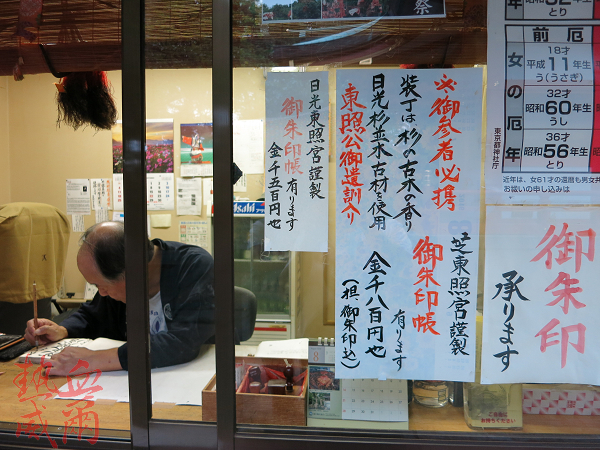 祭
年生
とり
年生
とり
前厄
女の厄年
18才
平成11年生
う(うさぎ)
32才
昭和60年生
うし
36才
昭和56年生
とり
東京都神社庁
近年は、女61才の還暦も男女共
お祓いの申し込みは
御朱印
承ります
※御参者必携
装丁は杉の古木の香り
日光杉並木古材を使用
東照公御遺訓入り
芝東照宮謹製
御朱印帳
有ります
金千八百円也
(但、御朱印込)
日光東照宮謹製
御朱印帳
有ります
金千五百円也
Asahi
8
熱血
威爾